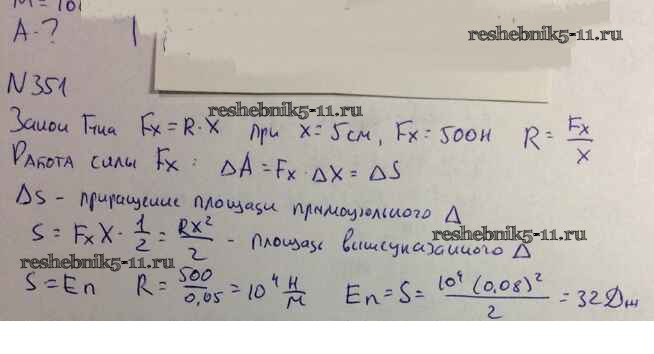 M = 10
A - ?
reshebnik5-11.ru
N 351
reshebnik5-11.ru
Закон Гука Fx = R · X при x = 5 см, Fx = 500 Н R = Fx/x
Работа силы Fx : ΔA = Fx · ΔX = ΔS
ΔS - приращение площади прямоугольного Δ
S = FxX · 1/2 = RX²/2 - площадь вышеуказанного Δ
reshebnik5-11.ru
reshebnik5-11.ru
S = Eп R = 500/0,05 = 10⁴ Н/м Eп = S = 10⁴ (0,08)²/2 = 32 Дж